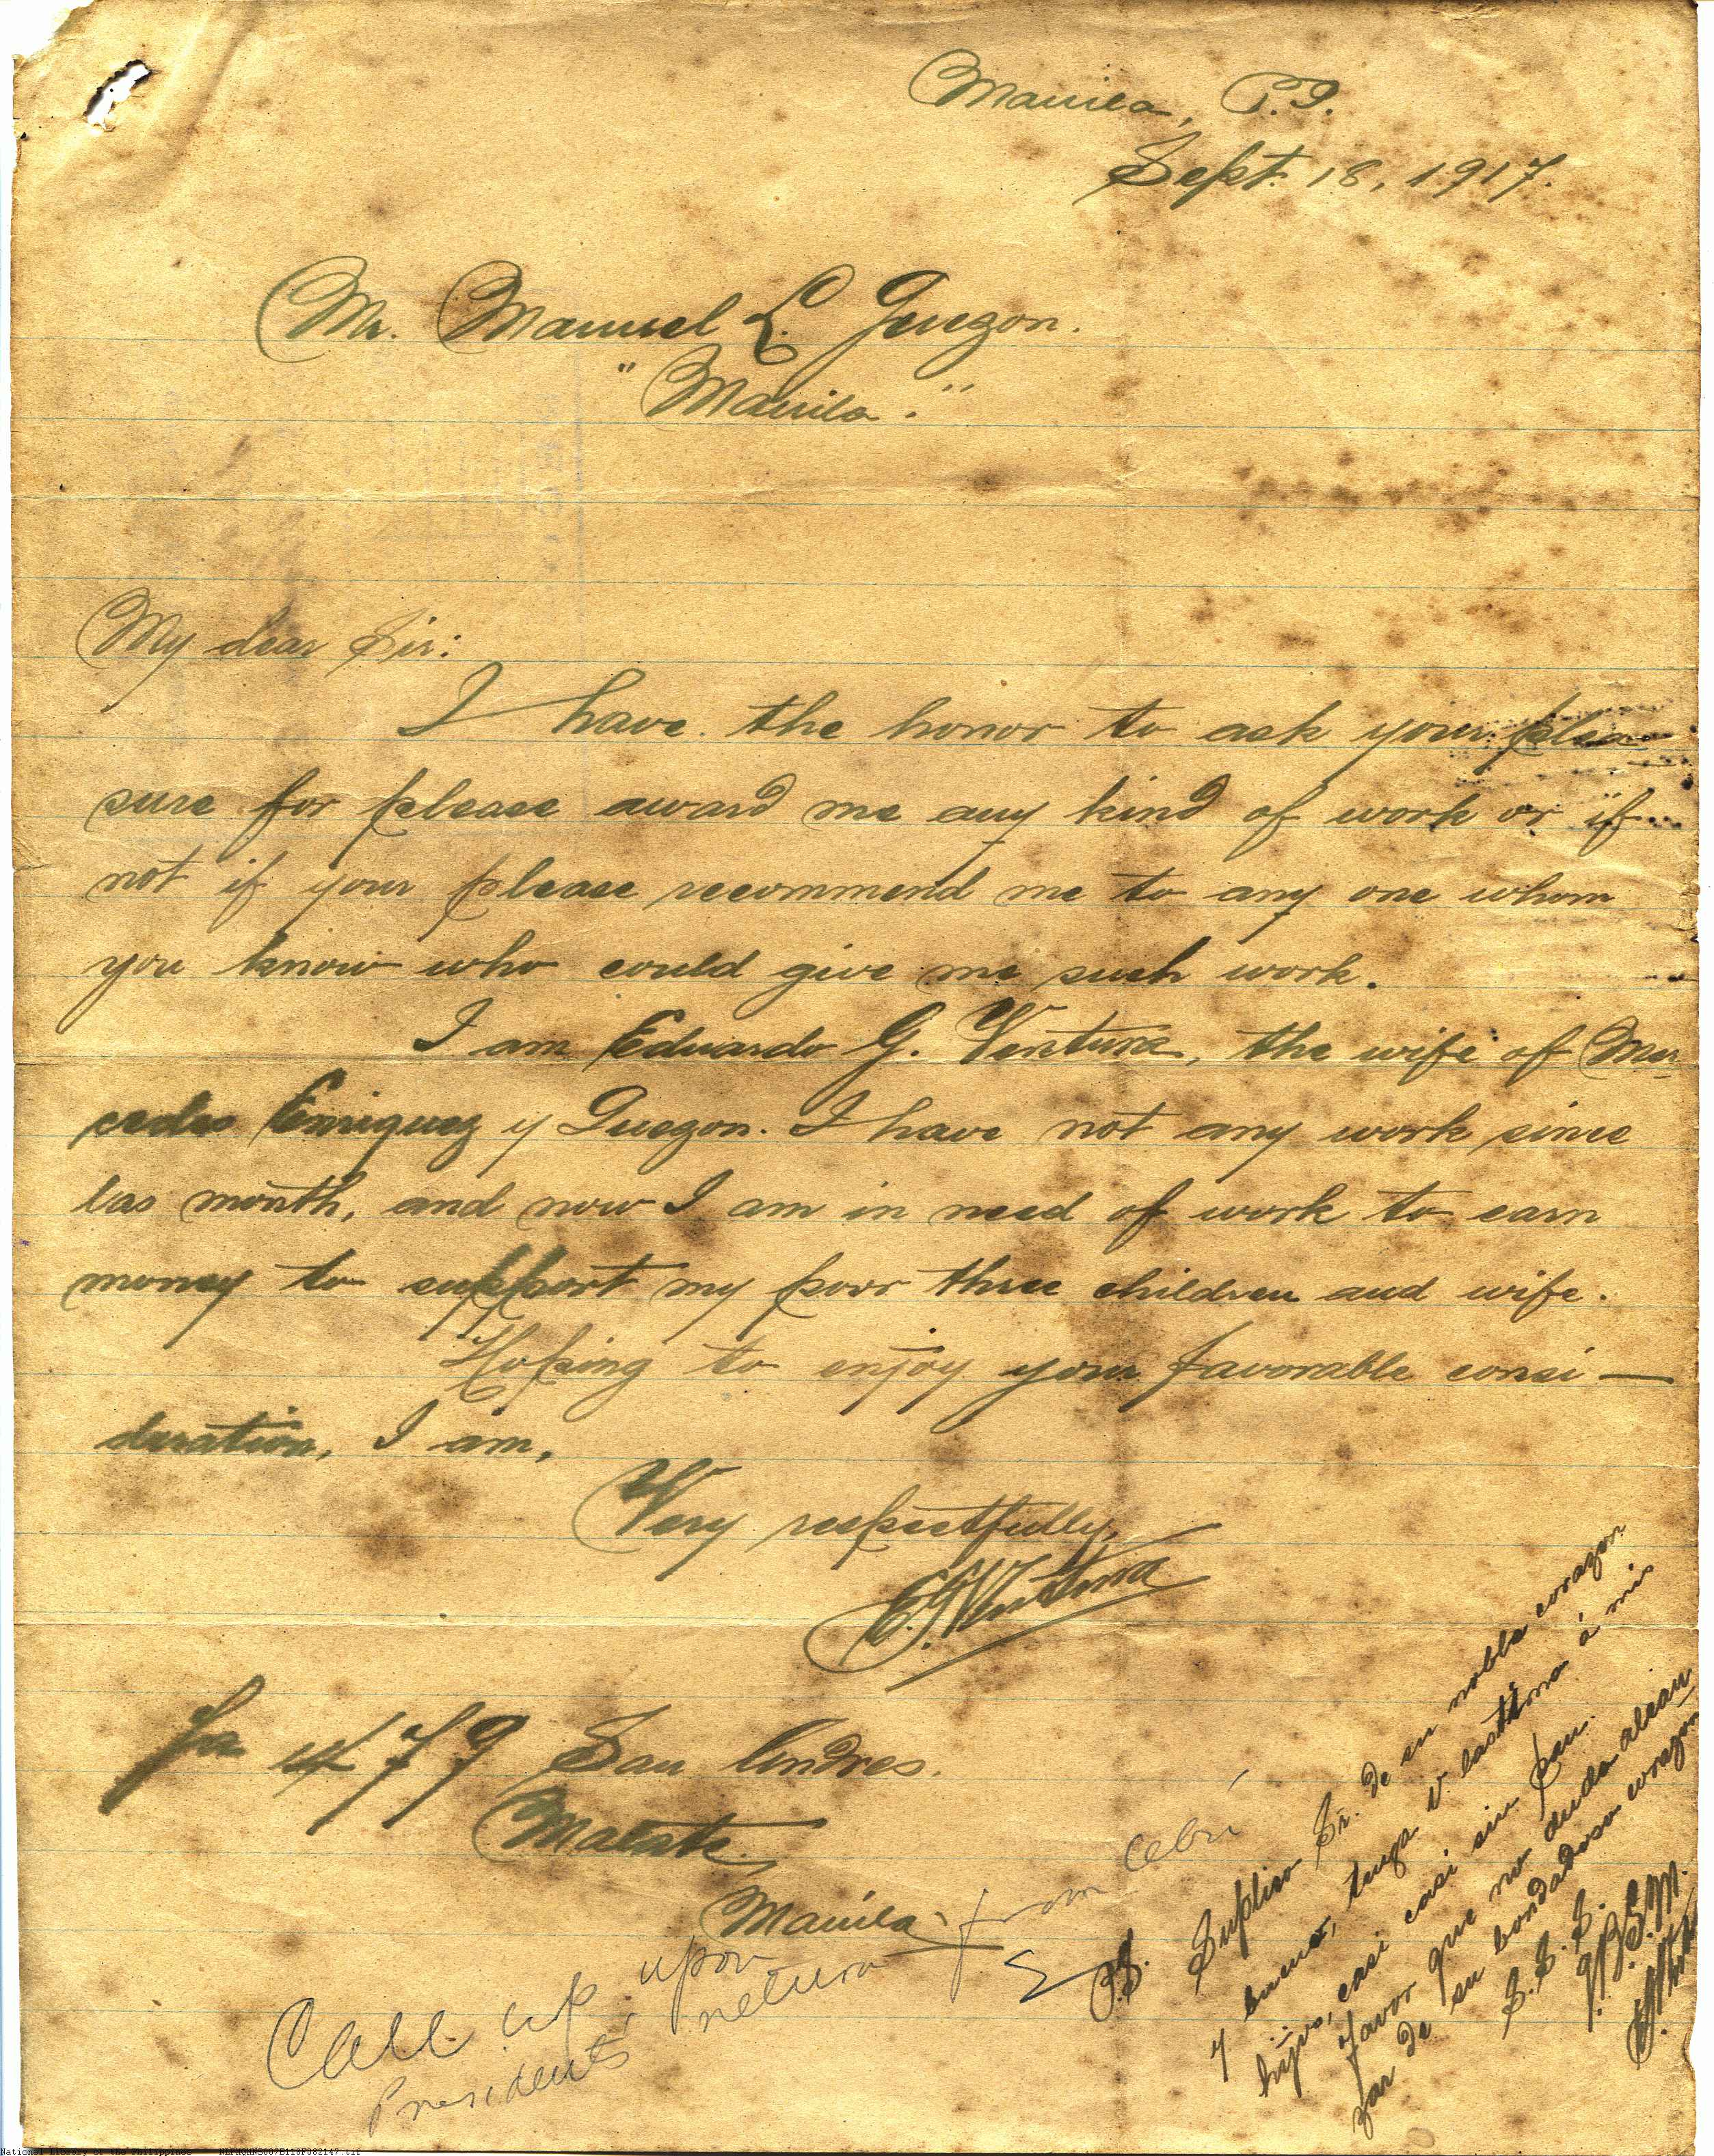 Manila, P.I.
Sept. 18, 1917.
Mr. Manuel L. Quezon.
"Manila."
My dear Sir:
I have the honor to ask your plea-
sure for please award me any kind of work or if
not if your please recommend me to any one whom
you know who could give me such work.
I am Eduardo G. Ventura, the wife of Mer-
cedes Enriquez y Quezon. I have not any work since
las month, and now I am in need of work to earn
money to support my poor three children and wife.
Hoping to enjoy your favorable consi-
deration, I am,
Very respectfully,
E.G. Ventura
479 San Andres.
Malate
Manila
Call up upon
Presidents return from Cebú
P.S. Suplico Sr. de su noble corazon
y bueno, tenga V. lastima á mis
hijos, casi casi sin pan.
favor que no duda alcan
zar de su bondadoso corazon
S. S. S.
Q.B.S.M.
E.G. Ventura
National Library of the Philippines NLPMQMNS007B118F002147.tif